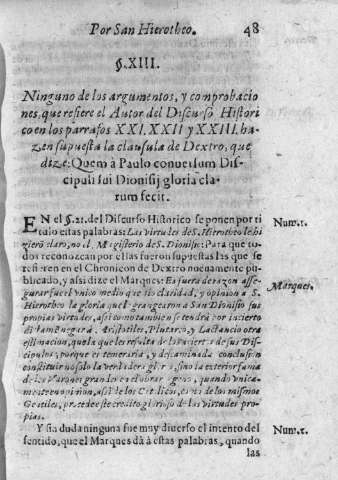 Por San Hierotheo. 48
§. XIII.
Ninguno de los argumentos, y comprobacio
nes, que refiere el Autor del Discurso Histori
co en los parrafos XXI. XXII y XXIII. ha-
zen supuesta la clausula de Dextro, que
dize: Quem à Paulo conuersum Dis-
cipuli sui Dionisij gloria cla-
rum fecit.
EN el §. 21. del Discurso Historico se ponen por ti
tulo estas palabras: Las virtudes de S. Hierotheo le hi
zieró claro, no el Magisterio de S. Dionisio: Para que to-
dos reconozcan por ellas fueron supuestas las que se
refieren en el Chronicon de Dextro nueuamente pu-
blicado, y assi dize el Marques: Es fuera de razon asse-
gurar fue el vnico medio que dio claridad, y opinion a S.
Hierotheo la gloria que le grangearon a San Dionisio sus
propias virtudes, assi como tambien se tendrá por incierto
Aristotiles, Plutarco, y Lactancio otra
estimacion, que la que les resulta de sus Dis-
cipulos; porque es temeraria, y descaminada conclusion
constituir no solo la verdadera gloria, sino la exterior fama
de los Varones grandes en el obrar ageno, quando vnica-
mente en opinion, assi de los Catolicos, como de los mismos
Gentiles, procede este credito glorioso de las virtudes pro-
pias.
Y sin duda ninguna fue muy diuerso el intento del
sentido, que el Marques dà à estas palabras, quando
las
Num. 1.
Marques
Num. 2.